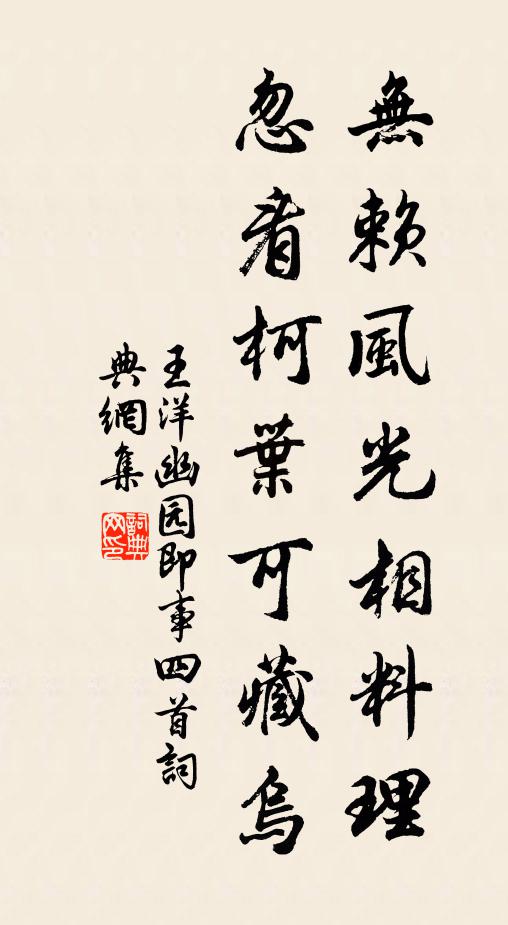 無賴風光相料理
忽看柯葉可藏烏
王洋幽园即事四首詞
典網集
詞典網印